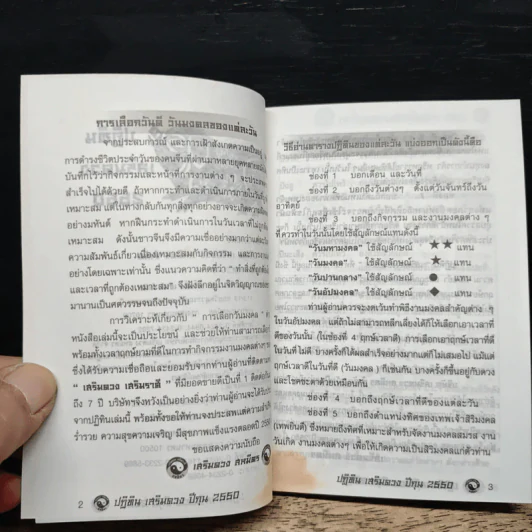 การเลือกวันดี วันมงคลของแต่ละวัน
จากประสบการณ์ และการเฝ้าสังเกตความเป็นอยู่
การดำรงชีวิตประจำวันของคนจีนที่ผ่านมาหลายยุคหลายสมัย
บันทึกไว้ว่ากิจกรรมและหน้าที่การงานต่าง ๆ จะประสบ
สำเร็จไปได้ด้วยดี ถ้าหากกระทำและดำเนินการภายในวันที่
เหมาะสม แต่ในทางกลับกันทุกสิ่งทุกอย่างอาจจะเกิดความ
อย่างมหันต์ หากฝืนกระทำดำเนินการในวันเวลาที่ไม่
เหมาะสม ดังนั้นชาวจีนจึงมีความเชื่ออย่างมากว่าแต่ละวัน
ความสัมพันธ์เกี่ยวเนื่องเหมาะสมกับกิจกรรมและการงาน
อย่างโดยเฉพาะเท่านั้น ซึ่งแนวความคิดที่ว่า " ทำสิ่งที่ถูกต้อง
และเวลาที่ถูกต้องเหมาะสม" จึงฝังลึกอยู่ในจิตวิญญาณของ
มานานเป็นศตวรรษจนถึงปัจจุบัน
การวิเคราะห์เกี่ยวกับ " การเลือกวันมงคล "
หนังสือเล่มนี้จะเป็นประโยชน์ และช่วยให้ท่านสามารถ
พร้อมทั้งเวลาฤกษ์ยามที่ดีในการทำกิจกรรมงานมงคลต่าง ๆ
ซึ่งได้รับความเชื่อถือและยอมรับจากท่านผู้อ่านที่ติดตาม
" เสริมดวง เสริมราศี " ที่มียอดขายดีเป็นที่ 1 ติดต่อกัน
ถึง 7 ปี บริษัทฯจึงหวังเป็นอย่างยิ่งว่าท่านผู้อ่านจะได้รับ
จากปฏิทินเล่มนี้ พร้อมทั้งขอให้ท่านจงประสพแต่ความสำเร็จ
ร่ำรวย ความสุขความเจริญ มีสุขภาพแข็งแรงตลอดปี 2550
ขอแสดงความนับถือ
เสริมดวง
2 ปฏิทิน เสริมดวง ปีกุน 2550
วิธีอ่านตารางปฏิทินของแต่ละวัน แบ่งออกเป็นดังนี้คือ
ช่องที่ 1 บอกเดือน และวันที่
ช่องที่ 2 บอกถึงวันต่างๆ ตั้งแต่วันจันทร์ถึงวัน
อาทิตย์
ช่องที่ 3 บอกถึงกิจกรรม และงานมงคลต่าง ๆ
ที่ควรทำในวันนั้นโดยใช้สัญลักษณ์แทนดังนี้
"วันมหามงคล" ใช้สัญลักษณ์ ★★ แทน
"วันมงคล" ใช้สัญลักษณ์ ★ แทน
"วันปานกลาง" ใช้สัญลักษณ์ ● แทน
"วันอัปมงคล" ใช้สัญลักษณ์ ◆ แทน
ท่านผู้อ่านควรจะงดเว้นทำพิธีงานมงคลสำคัญต่าง ๆ
ในวันอัปมงคล แต่ถ้าไม่สามารถหลีกเลี่ยงได้ก็ให้เลือกเอาเวลาที่
ดีของวันนั้น (ในช่องที่ 4 ฤกษ์เวลาดี) การเลือกเอาฤกษ์เวลาที่ดี
ในวันที่ ไม่ดี บางครั้งก็ได้ผลสำเร็จอย่างมากแต่ก็ไม่เสมอไป แม้แต่
ฤกษ์เวลาดีในวันที่ดี (วันมงคล ) ก็เช่นกัน บางครั้งก็ขึ้นอยู่กับดวง
และโชคชะตาด้วยเหมือนกัน
ช่องที่ 4 บอกถึงฤกษ์เวลาที่ดีของแต่ละวัน
ช่องที่ 5 บอกถึงตำแหน่งทิศของเทพเจ้าสิริมงคล
(เทพยินดี) ซึ่งหมายถึงทิศที่เหมาะสำหรับจัดงานมงคลสมรส งาน
วันเกิด งานมงคลต่างๆ เพื่อให้เกิดความเป็นสิริมงคลแก่ตัวท่าน
ปฏิทิน เสริมดวง ปีกุน 2550 3